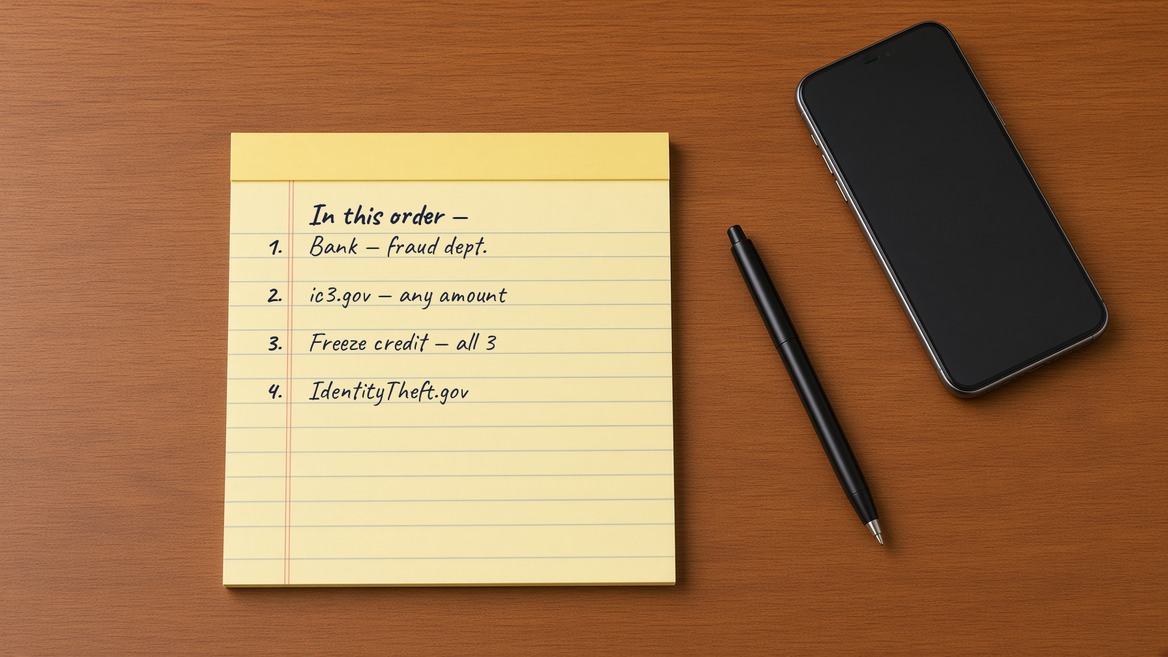 In this order —
1. Bank — fraud dept.
2. ic3.gov — any amount
3. Freeze credit — all 3
4. IdentityTheft.gov